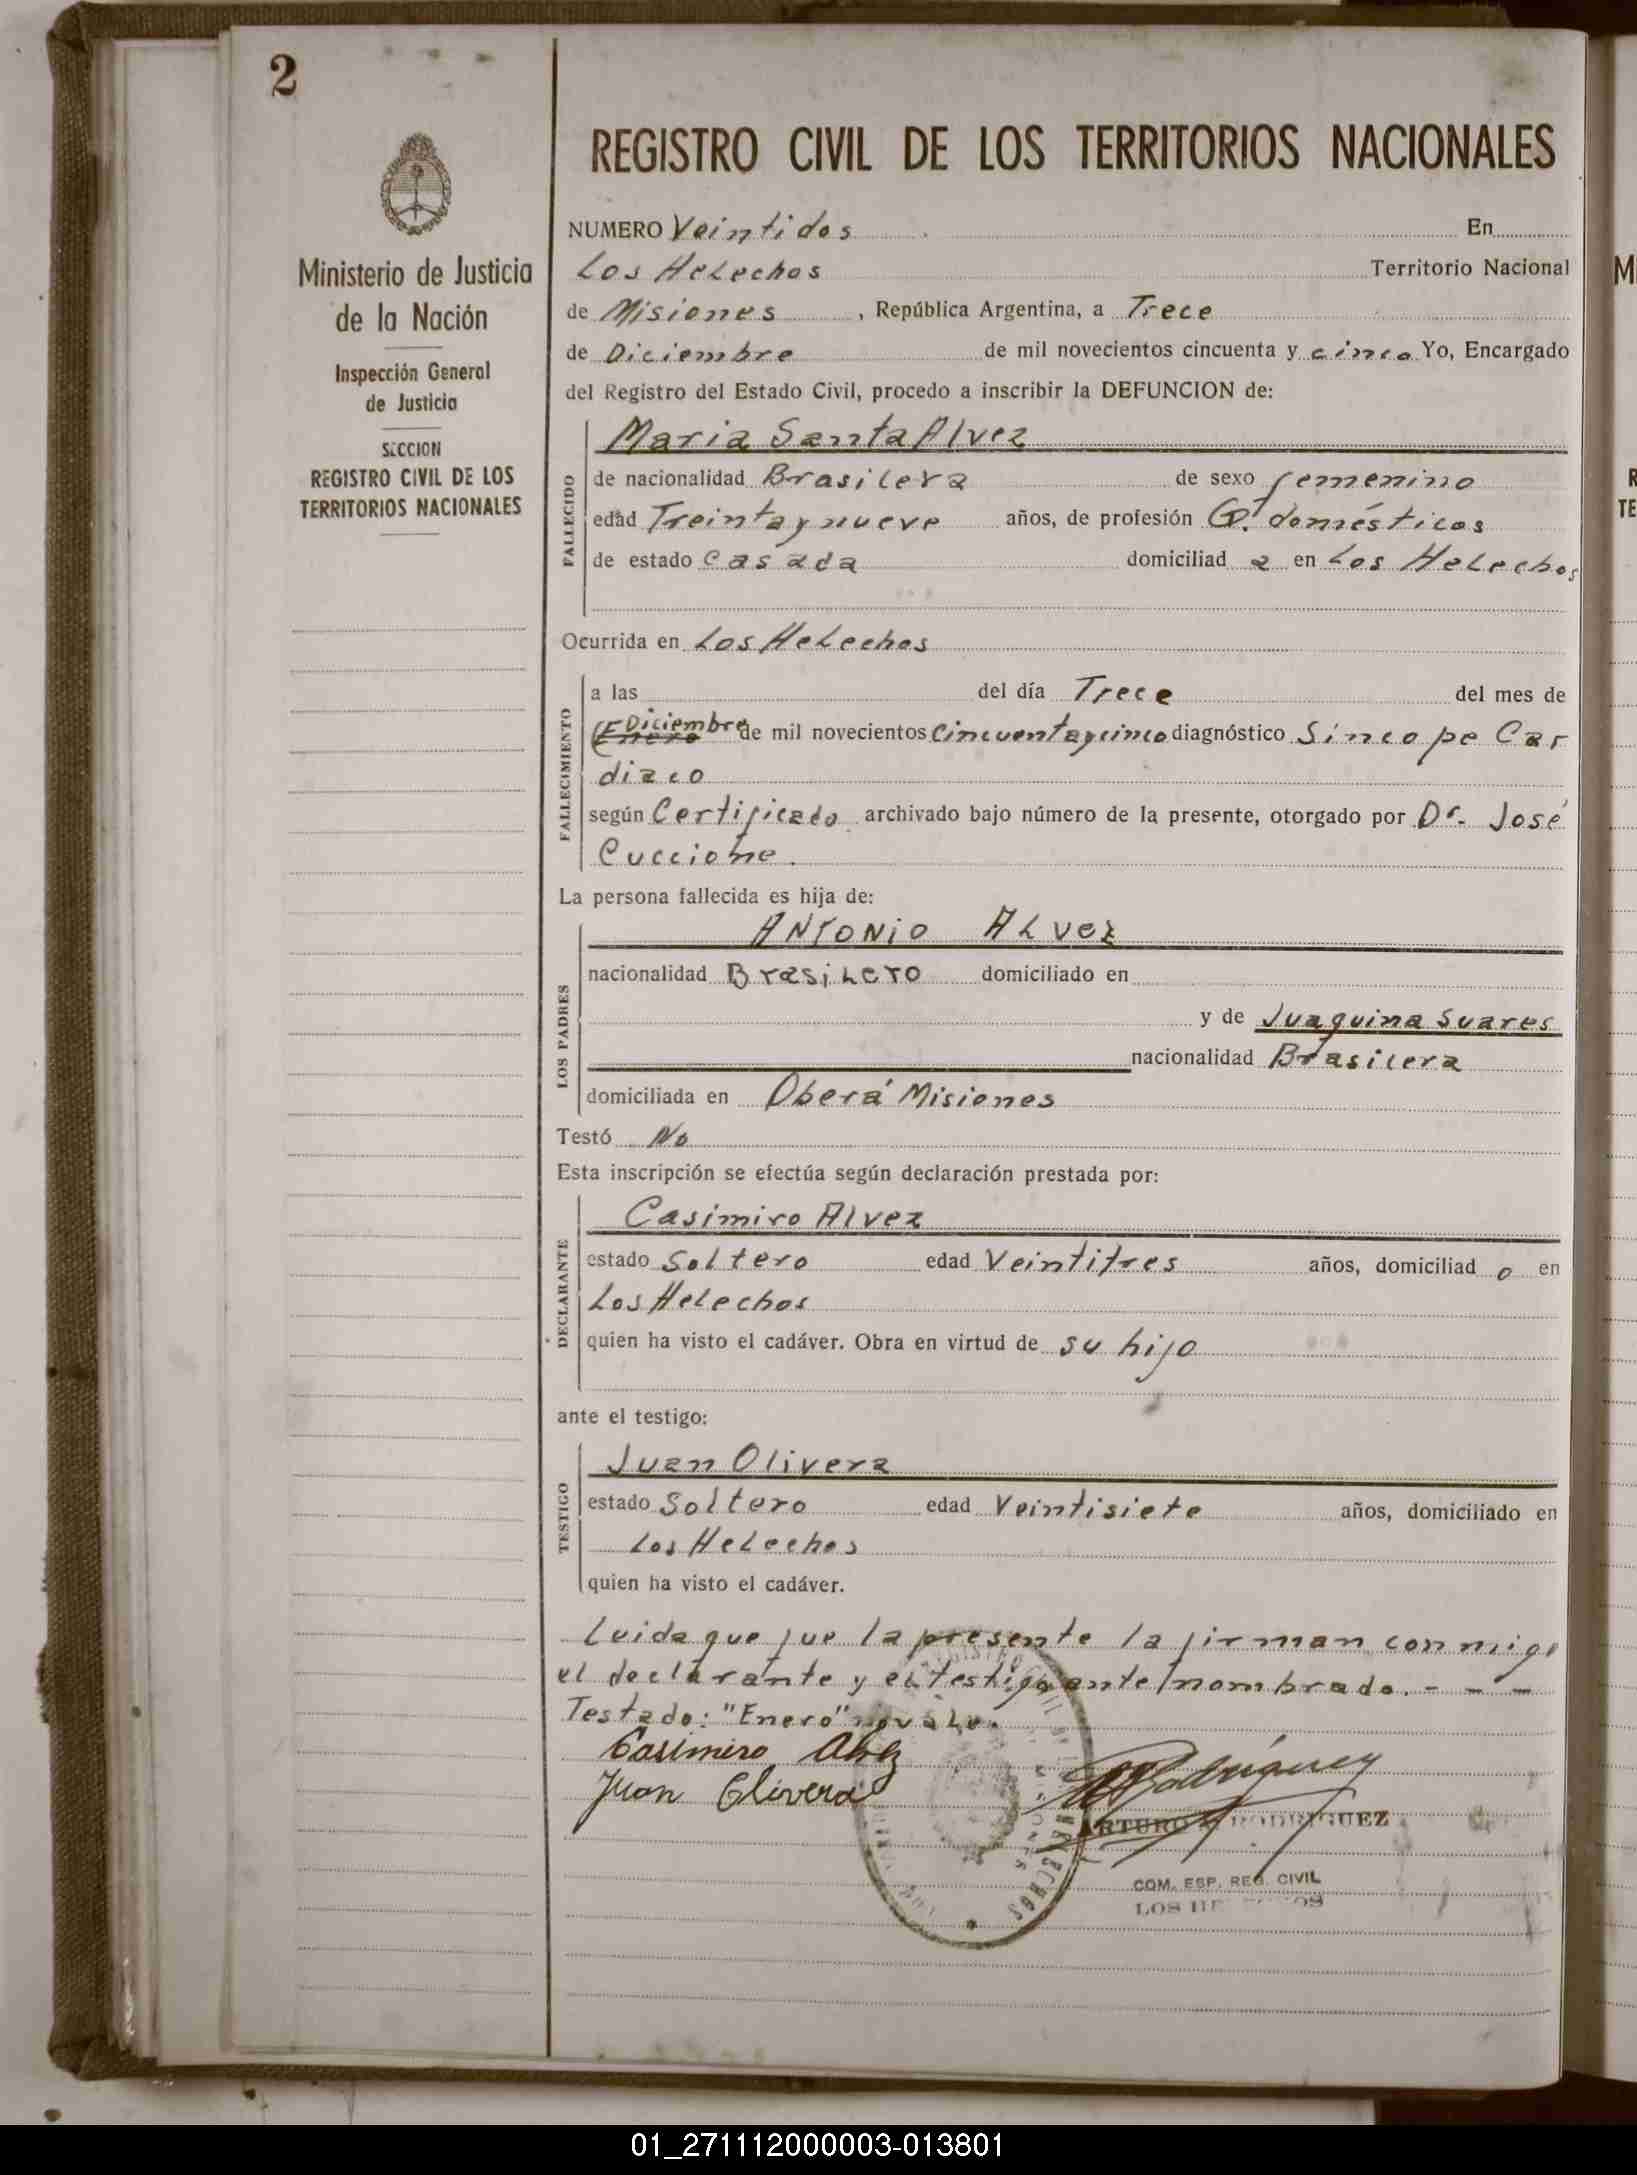 2
Ministerio de Justicia
de la Nación
Inspección General
de Justicia
SECCION
REGISTRO CIVIL DE LOS
TERRITORIOS NACIONALES
REGISTRO CIVIL DE LOS TERRITORIOS NACIONALES
NUMERO Veintidos En
Los Helechos Territorio Nacional
de Misiones, República Argentina, a Trece
de Diciembre de mil novecientos cincuenta y cinco Yo, Encargado
del Registro del Estado Civil, procedo a inscribir la DEFUNCION de:
FALLECIDO
Maria Santa Alvez
de nacionalidad Brasilera de sexo femenino
edad Treinta y nueve años, de profesión Q. domésticos
de estado casada domiciliad a en Los Helechos
Ocurrida en Los Helechos
FALLECIMIENTO
a las del día Trece del mes de
Diciembre
Enero de mil novecientos Cincuenta y cinco diagnóstico Sincope Car
diaco
según Certificado archivado bajo número de la presente, otorgado por Dr. José
Cuccione.
La persona fallecida es hija de:
LOS PADRES
ANTONIO ALvez
nacionalidad Brasilero domiciliado en
y de Juaquina Suares
nacionalidad Brasilera
domiciliada en Oberá Misiones
Testó No
Esta inscripción se efectúa según declaración prestada por:
DECLARANTE
Casimiro Alvez
estado Soltero edad Veintitres años, domiciliad o en
Los Helechos
quien ha visto el cadáver. Obra en virtud de su hijo
ante el testigo:
TESTIGO
Juan Olivera
estado Soltero edad Veintisiete años, domiciliado en
Los Helechos
quien ha visto el cadáver.
Leida que fue la presente la firman conmigo
el declarante y el testigo ante/nombrado. - - -
Testado: "Enero" no vale.
Casimiro Alvez
Juan Olivera
Rodríguez
ARTURO RODRIGUEZ
COM. ESP. REG. CIVIL
LOS HELECHOS
M
R
TE
01_271112000003-013801